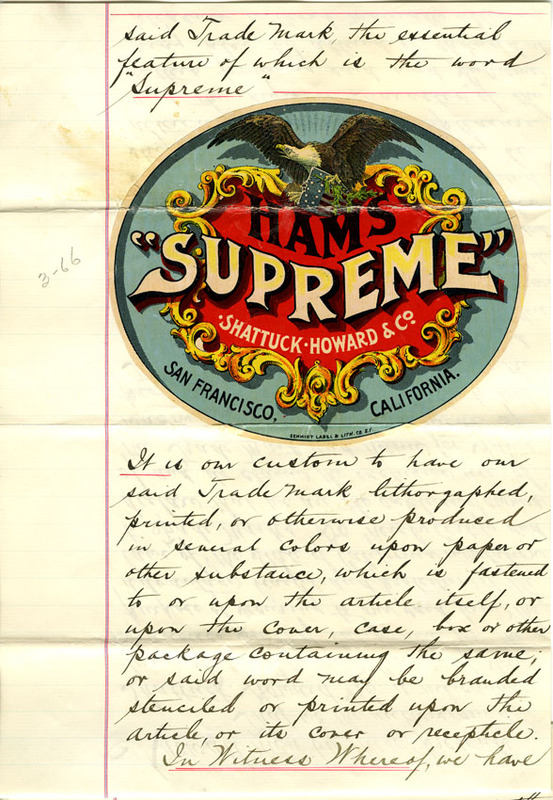 said Trade Mark, the essential
feature of which is the word
"Supreme"
HAMS
"SUPREME"
·SHATTUCK·HOWARD & Co
SAN FRANCISCO, CALIFORNIA.
SCHMIDT LABEL & LITH. CO. S.F.
3-66
It is our custom to have our
said Trade Mark lithorgaphed,
printed, or otherwise produced
in several colors upon paper or
other substance, which is fastened
to or upon the article itself, or
upon the cover, case, box or other
package containing the same;
or said word may be branded
stenciled or printed upon the
article, or its cover or recepticle.
In Witness Whereof, we have